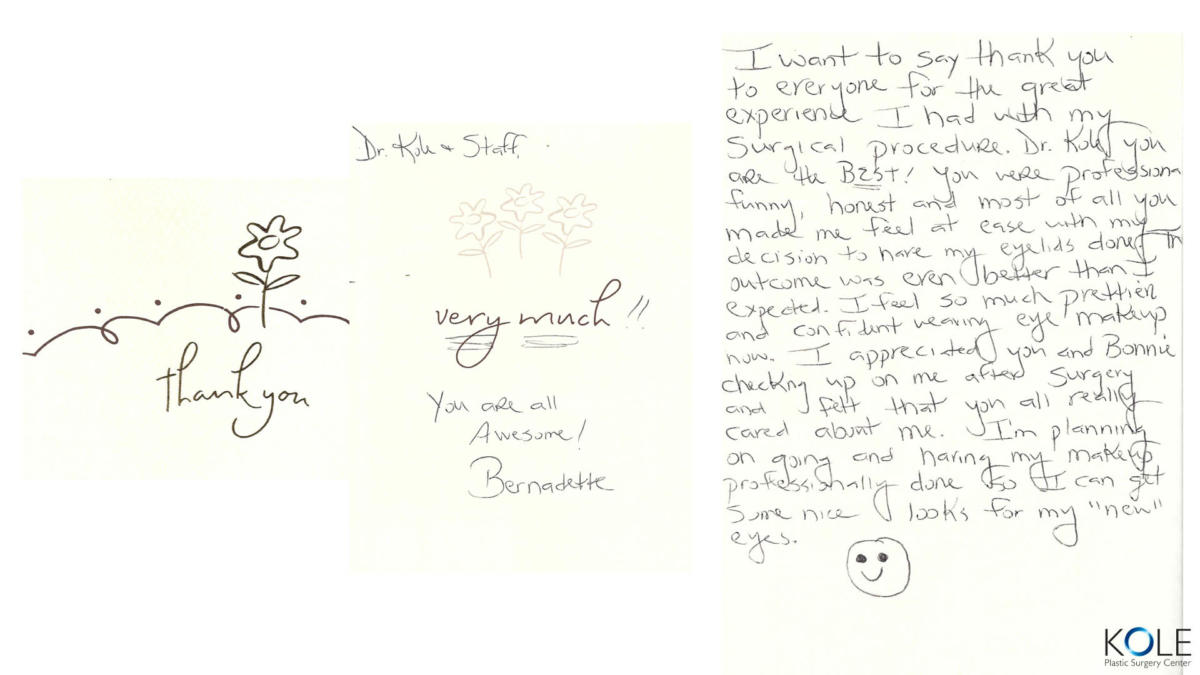 thank you
Dr. Kole & Staff,
very much!!
You are all
Awesome!
Bernadette
I want to say thank you
to everyone for the great
experience I had with my
Surgical procedure. Dr. Kole you
are the Best! You were professional
funny, honest and most of all you
made me feel at ease with my
decision to have my eyelids done. Th
outcome was even better than I
expected. I feel so much prettier
and confident wearing eye makeup
now. I appreciated you and Bonnie
checkng up on me after surgery
and I felt that you all really
cared about me. I'm planning
on going and having my makeup
professionally done so I can get
some nice looks for my "new"
eyes.
KOLE
Plastic Surgery Center